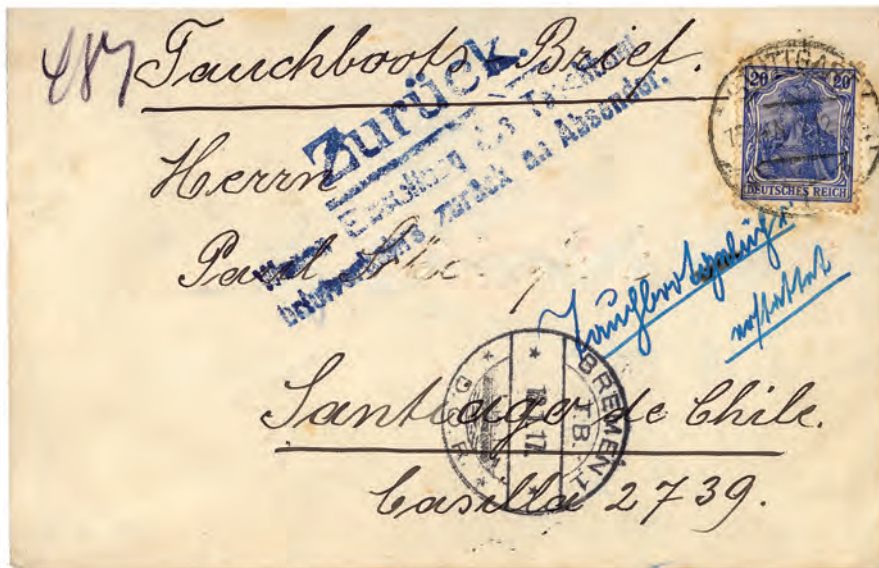 487
Tauchboots-Brief.
Zurück.
Wegen Einstellung des Tauchboot
briefverkehrs zurück an Absender.
STUTTGART
20 20
DEUTSCHES REICH
Herrn
Paul
Tauchbootgebühr
erstattet
BREMEN 1
T.B.
17
Santiago de Chile.
Casilla 2739.